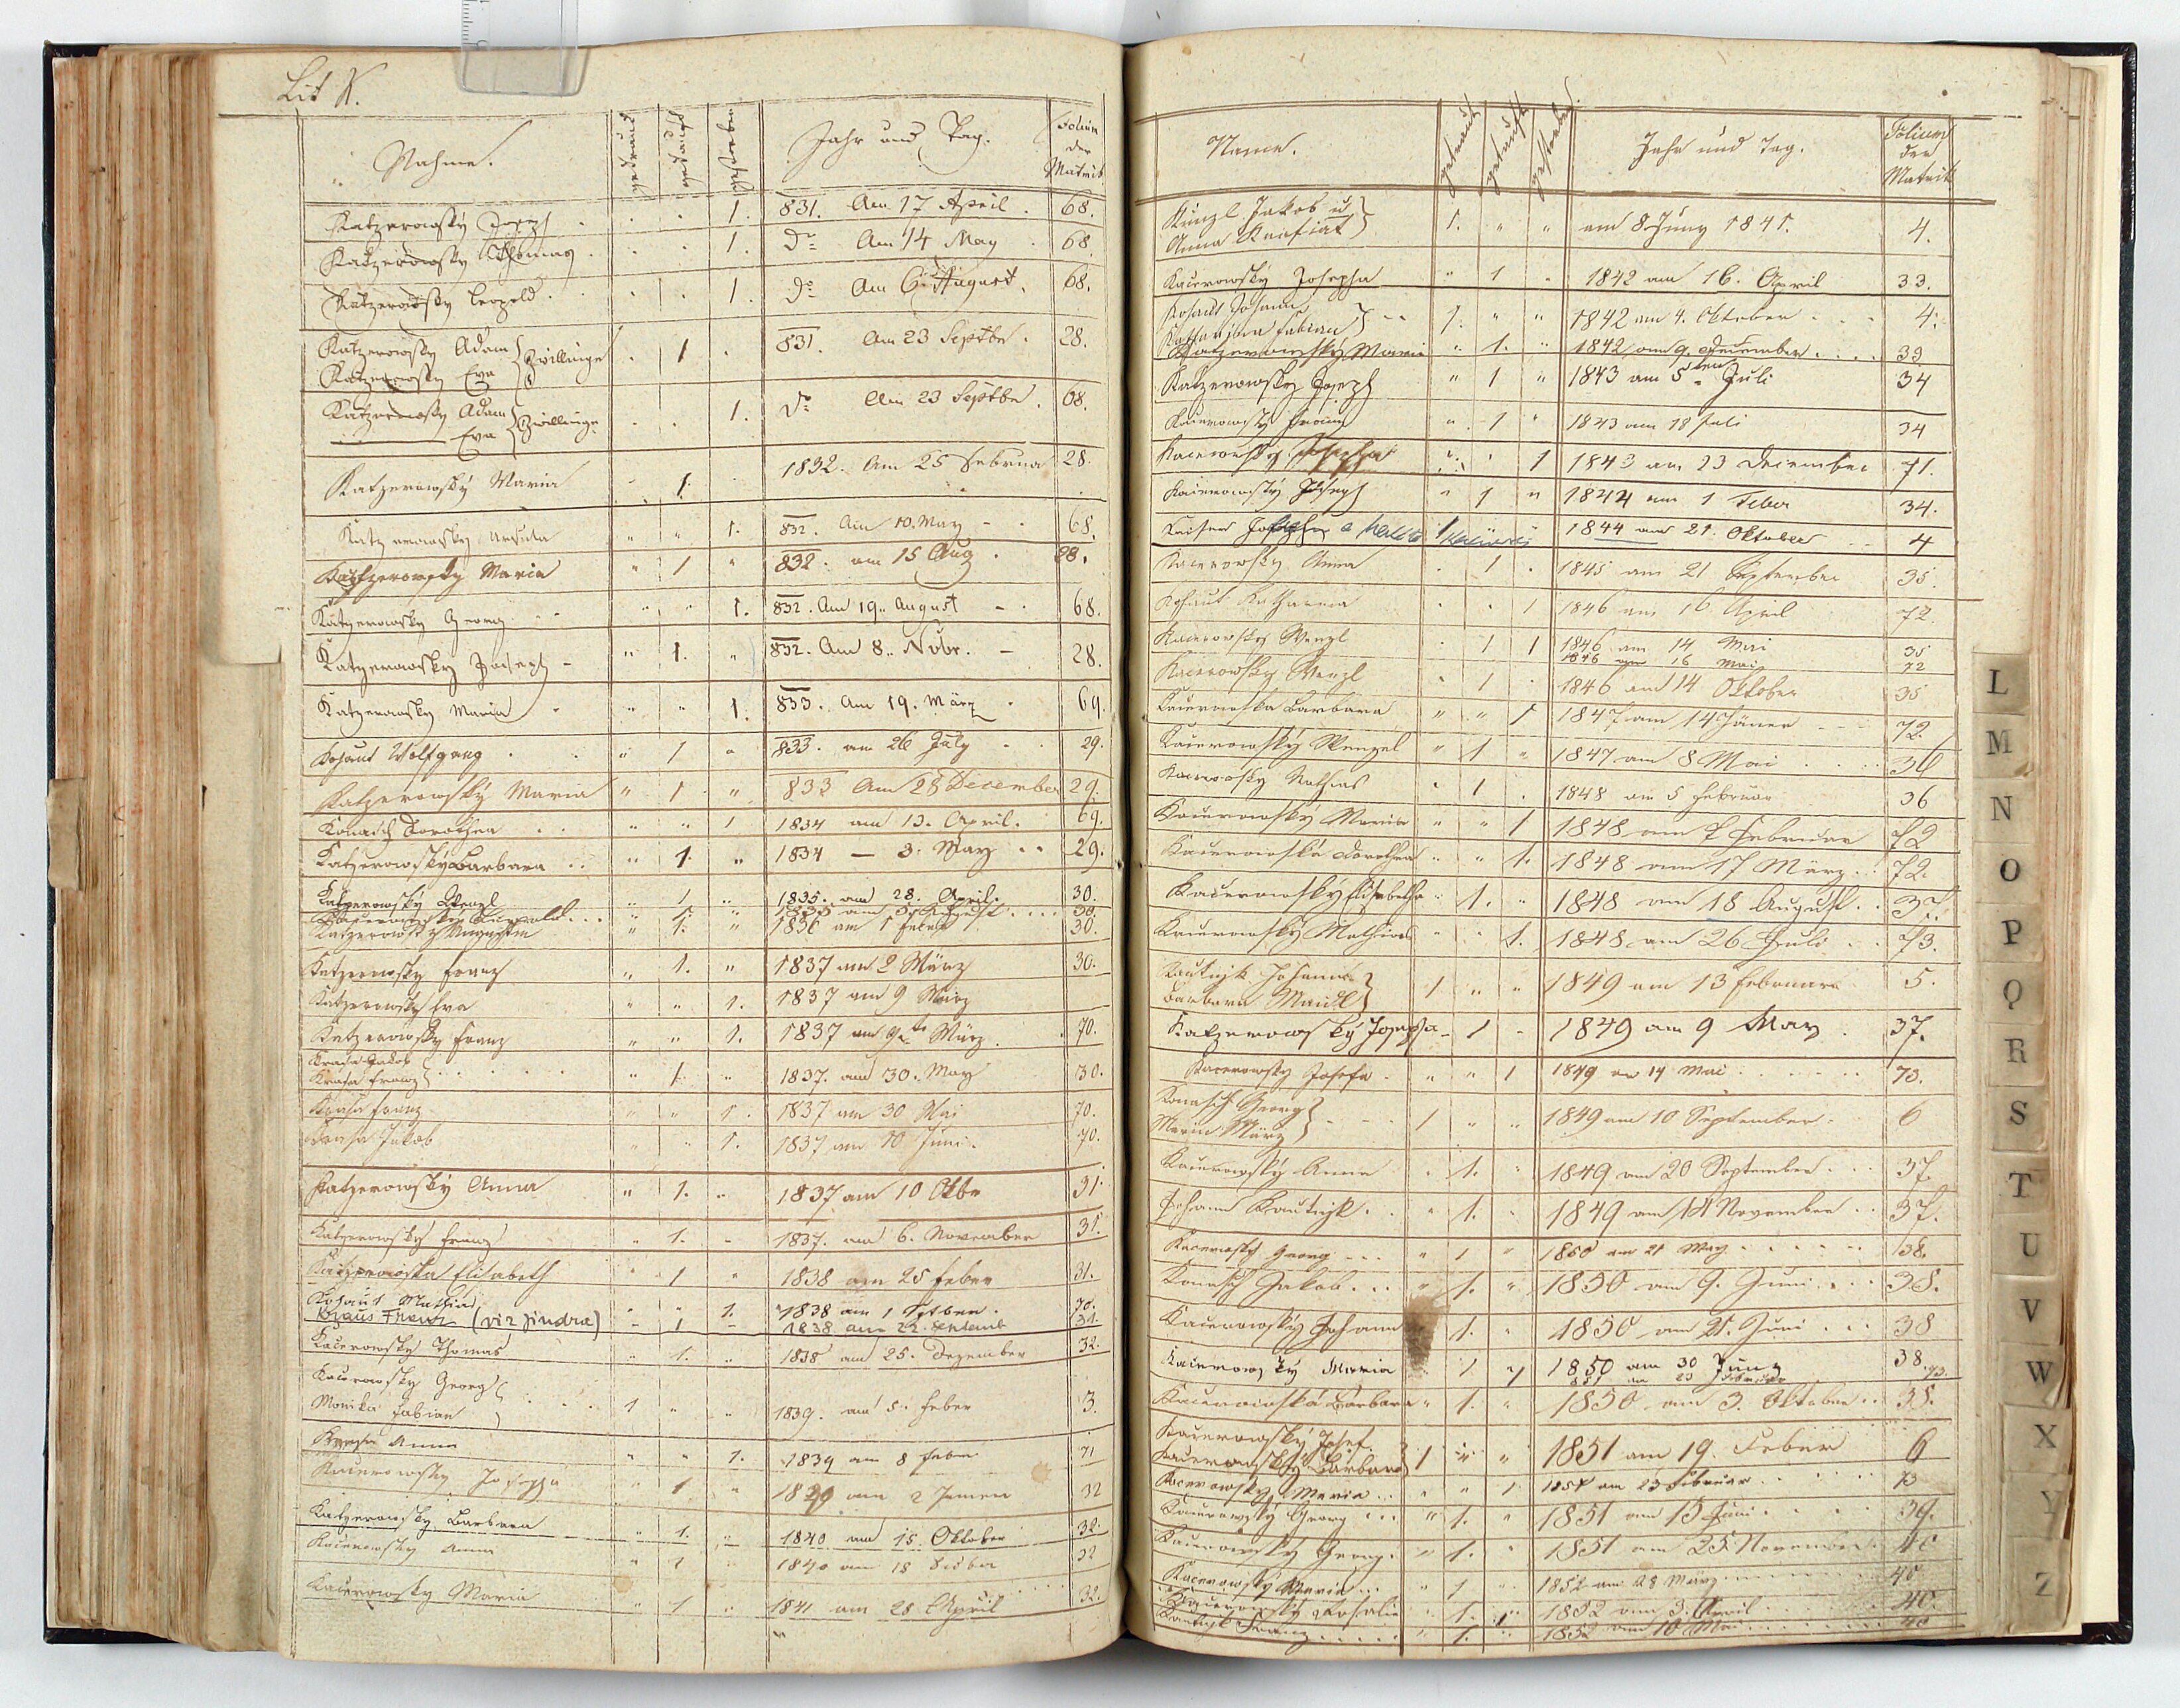 Lit K.
Nahme. getraut getauft gestorben Jahr und Tag. Folium der Matrik
Katzerowsky Joseph 1. 831. Am 17 April. 68.
Katzerowsky Thomas 1. do Am 14 May 68
Katzerowsky Leopold 1. do Am 6 August. 68.
Katzerowsky Adam
Katzerowsky Eva } Zwillinge 1 831. Am 23 Septbr. 28.
Katzerowsky Adam
Eva } Zwillinge. 1. do Am 23 Septbr. 68.
Katzerowsky Maria 1. 1832. Am 25 Februar 28.
Katzerowsky Ursula " " 1. 832. Am 10. May 68.
Katzerowsky Maria " 1 " 832. am 15 Aug. 28.
Katzerowsky Georg " " 1. 832. Am 19. August 68.
Katzerowsky Joseph " 1. " 832. Am 8. Nobr. 28.
Katzerowsky Maria " " 1. 833. Am 19. März 69.
Kohaut Wolfgang " 1 " 833. am 26 July 29.
Katzerowský Maria " 1 " 833 Am 28 December 29.
Konasch Dorothea " " 1 1834 am 13. April. 69.
Katzerowský Barbara " 1. " 1834 — 3. May 29.
Katzerowský Wenzl " 1 " 1835. am 28. April. 30.
1. " 1835 am August 30
Katzerowský Augustin " 1. " 1836 am 1 Feber 30.
Katzerowsky Franz " 1. " 1837 am 2 März 30.
Katzerowsky Eva " " 1. 1837 am 9 März
Katzerowsky Franz " " 1. 1837 am 9 März. 70.
Krasa Jakob
Krasa Franz } " 1. " 1837. am 30. May 30.
Krasa Franz " " 1. 1837 am 30 Mai 70.
Krasa Jakob " " 1. 1837 am 10 Juni. 70.
Katzerowský Anna " 1. " 1837 am 10 Oktbr 31.
Katzerowský Franz " 1. " 1837. am 6. November 31.
Katzerowska Elisabeth " 1 " 1838 am 25 Feber 31.
Kohaut Mathias " " 1. 1838 am 1 70.
Kraus Franz (viz Jindra) - 1 - 1838 am 22. Septemb 31.
Kačerowský Thomas " 1. " 1838 am 25. Dezember 32.
Kačerowsky Georg
Monika Fabian } 1 " " 1839. am 5. Feber 3.
Krasa Anna " " 1. 1839 am 8 Feber 71
Kačerowsky Josepha " 1 " 1839 am 2 Jenner 32
Katzerowsky Barbara " 1. " 1840 am 15. Oktober 32.
Kačerowsky Anna " 1 " 1840 am 18 32
Kačerowsky Maria " 1 " 1841 am 28 April 32.
Name. getraut getauft gestorben. Jahr und Tag. Folium der Matrik
Künzl Jakob u.
Anna } 1. " " am 8 Juny 1841. 4.
Kačerowský Josepha " 1 " 1842 am 16. April 33.
Kohaut Johann
Katharina Fabian } 1. " " 1842 am 4. Oktober 4.
Katzerowský Maria " 1. " 1842 am 9. December 33
Katzerowsky Joseph " 1 " 1843 am 5ten Juli 34
Kačerowsky Franz " 1 " 1843 am 18 Juli 34
Kačerowsky Josepha " " 1 1843 am 23 December 71.
Kačerowský Joseph " 1 " 1844 am 1 Feber 34.
Kaiser 1 1844 am 21. Oktober 4
Kačerowsky Anna 1 1845 am 21 September 35.
Kohaut Katharina 1 1846 am 16 April 72.
Kačerowsky Wenzl 1 1 1846 am 14 Mai 35
1846 am 16 Mai 72
Kačerowsky Wenzl 1 1846 am 14 Oktober 35
Kačerowska Barbara " " 1 1847 am 14 Jäner 72.
Kačerowský Wenzel " 1 " 1847 am 8 Mai 36
Kačerowsky Mathias " 1 1848 am 5 Februar 36
Kačerowský Maria " " 1 1848 am 7 Februar 72
Kačerowská Dorothea " " 1. 1848 am 17 März 72.
Kačerowský Elisabetha " 1. " 1848 am 18 August 37.
Kačerowský Mathias " " 1. 1848 am 26 Juli 73.
Kautnjk Johann
Barbara } 1 " " 1849 am 13 Februar 5.
Katzerowský Josepha - 1 - 1849 am 9 May 37.
Kacerowsky Josefa " " 1 1849 am 14 Mai 73.
Konasch Georg
Maria März } 1 " " 1849 am 10 September 6
Kačerowsky Anna 1. 1849 am 20 September 37.
Johann Kautnjk " 1. 1849 am 14 November 37.
Kacerowsky Georg " 1 " 1850 am 21 May 38.
Konasch Jakob " 1. " 1850 am 9. Juni 38.
Kačerowsky Johann 1. " 1850 am 21. Juni 38
Kačerowský Maria 1 1 1850 am 30 Juny 38.
851 am 23 Februar 73.
Kačerowská Barbara " 1. " 1850 am 3. Oktober 38.
Kačerowský Josef.
Kačerowský Barbara } 1 " " 1851 am 19. Feber 6
Kacerowsky Maria " " 1 1851 am 23 Februar 73
Kačerowský Georg " 1. " 1851 am 15 Juni 39.
Kačerowský Georg. " 1. " 1851 am 25. November 40
Kacerowsky Maria " 1 " 1852 am 28 März 40
Kačerowský Rosalie " 1. " 1852 am 3. April 40.
Kautnjk Franz " 1. 1 1852 am 10 Mai 40
L
M
N
O
P
Q
R
S
T
U
V
W
X
Y
Z